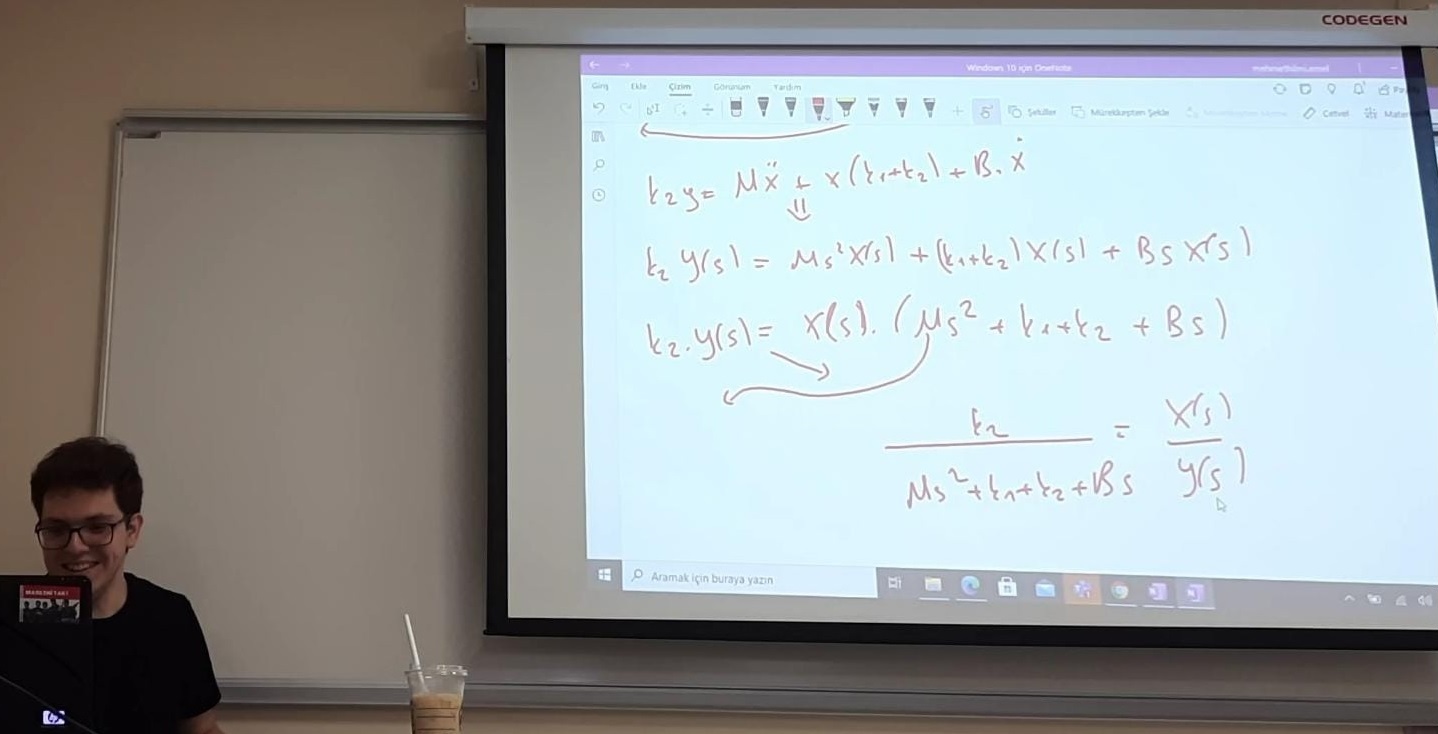 CODEGEN
Windows 10 için OneNote
Giriş Ekle Çizim Görünüm Yardım
Şekiller Mürekkepten Şekle Cetvel
k₂y = Mẍ + x(k₁+k₂) + B.ẋ
⇓
k₂ y(s) = Ms²X(s) + (k₁+k₂)X(s) + BsX(s)
k₂.y(s) = X(s).(Ms² + k₁+k₂ + Bs)
k₂ = X(s)
Ms²+k₁+k₂+Bs y(s)
Aramak için buraya yazın
hp